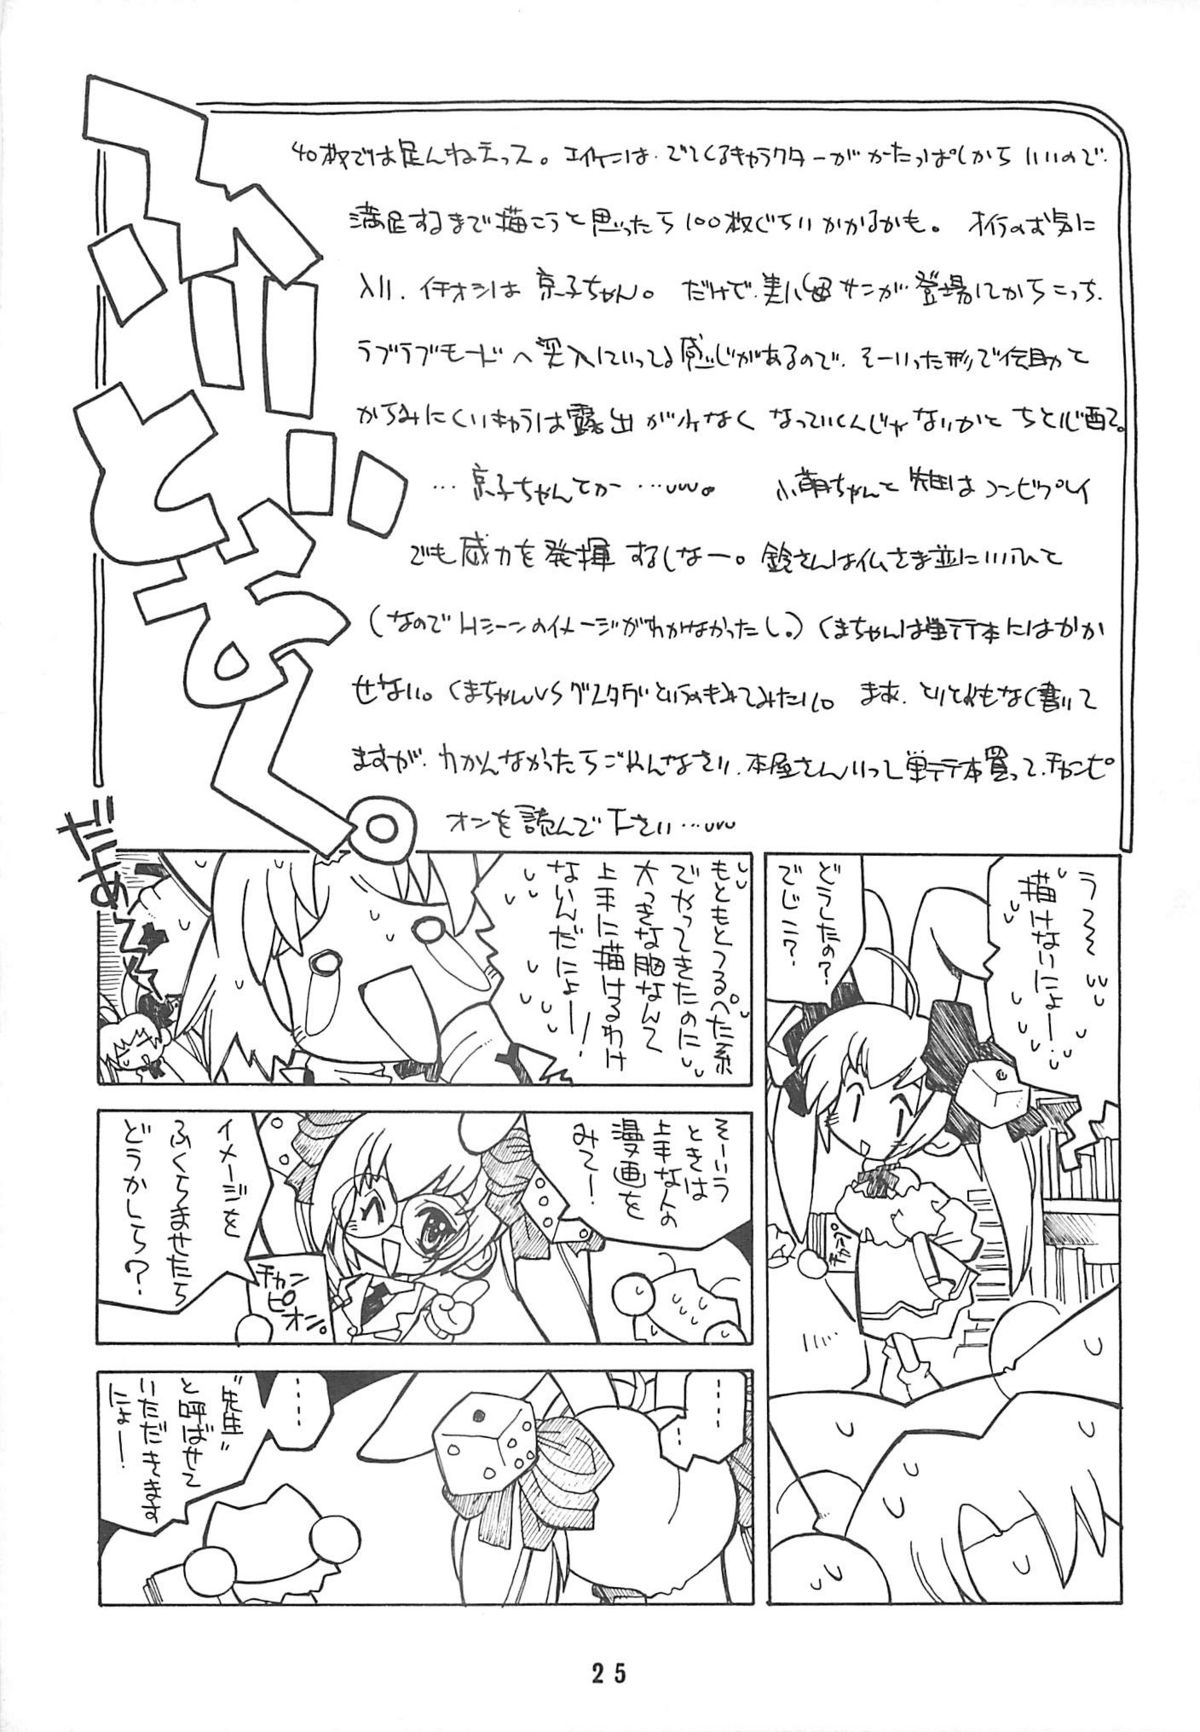 あとがく。
40枚では足んねえっス。エイケンは、でてくるキャラクターがかたっぱしからいいので、
満足するまで描こうと思ったら100枚ぐらいかかるかも。オイラのお気に
入り、イチオシは京子ちゃん。だけど、美八母サンが登場してからこっち、
ラブラブモードへ突入していってる感じがあるので、そーいった形で伝助と
からみにくいキャラは露出が少なくなっていくんじゃないかとちと心配。
…京子ちゃんてか…
小萌ちゃんと雉はコンビプレイ
でも威力を発揮するしなー。鈴さんは仏さま並にいいひと
(なのでHシーンのイメージがわかなかったし。)くまちゃんは単行本にはかか
せない。くまちゃんVSグスタグというのもみてみたい。まあ、とりとめもなく書いて
ますが、わかんなかったらごめんなさい、本屋さんいって単行本買って、チャンピ
オンを読んで下さい…
う~
描けないにょー
どうしたの?
でじこ?
チャンピ
もともとつるぺた系
でやってきたのに
大っきな胸なんて
上手に描けるわけ
ないんだにょー!
だあって
そーいう
ときは
上手な人の
漫画を
みてー!
イメージを
ふくらませたら
どうかしら?
チャン
ピオン。
……
……
"先生"
と呼ばせて
いただきます
にょー!
25